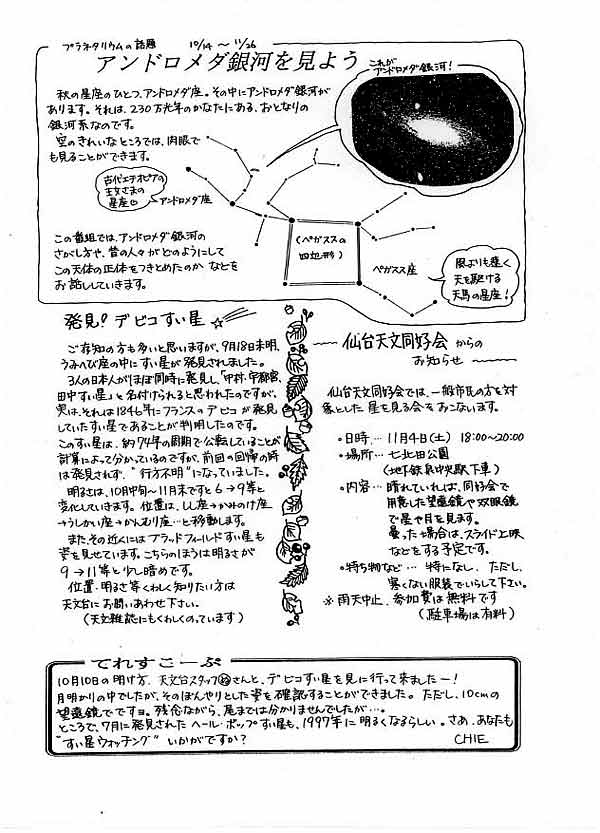 プラネタリウムの話題 10/14 〜 11/26
アンドロメダ銀河を見よう
これが
アンドロメダ銀河!
秋の星座のひとつ、アンドロメダ座。その中にアンドロメダ銀河が
あります。それは、230万光年のかなたにある、おとなりの
銀河系なのです。
空のきれいなところでは、肉眼で
も見ることができます。
古代エチオピアの
王女さまの
星座
アンドロメダ座
この番組では、アンドロメダ銀河の
さがし方や、昔の人々がどのようにして
この天体の正体をつきとめたのか などを
お話ししていきます。
(ペガススの
四辺形)
ペガスス座
風よりも速く
天を駆ける
天馬の星座!
発見!デビコすい星
ご存知の方も多いと思いますが、9月18日未明、
うみへび座の中にすい星が発見されました。
3人の日本人がほぼ同時に発見し、「中村・宇都宮・
田中すい星」と名付けられると思われたのですが、
実は、それは1846年にフランスのデビコが発見
していたすい星であることが判明したのです。
このすい星は、約74年の周期で公転していることが
計算によって分かっているのですが、前回の回帰の時
は発見されず、"行方不明"になっていました。
明るさは、10月中旬〜11月末ですと6→9等と
変化していきます。位置は、しし座→かみのけ座
→うしかい座→かんむり座…と移動します。
また、その近くにはブラッドフィールドすい星も
姿を見せています。こちらのほうは明るさが
9→11等と少し暗めです。
位置・明るさ等くわしく知りたい方は
天文台にお問いあわせ下さい。
(天文雑誌にもくわしくのっています)
仙台天文同好会 からの
お知らせ
仙台天文同好会では、一般市民の方を対
象とした星を見る会をおこないます。
・日時… 11月4日(土) 18:00〜20:00
・場所… 七北田公園
(地下鉄泉中央駅下車)
・内容… 晴れていれば、同好会で
用意した望遠鏡や双眼鏡
で星や月を見ます。
曇った場合は、スライド上映
などをする予定です。
・持ち物など… 特になし。ただし、
寒くない服装でいらして下さい。
※雨天中止、参加費は無料です
(駐車場は有料)
てれすこーぷ
10月10日の明け方、天文台スタッフ さんと、デビコすい星を見に行って来ましたー!
月明かりの中でしたが、そのぼんやりとした姿を確認することができました。ただし、10cmの
望遠鏡でですヨ。残念ながら、尾までは分かりませんでしたが…。
ところで、7月に発見されたヘール・ボップすい星も、1997年に明るくなるらしい。さあ、あなたも
"すい星ウォッチング" いかがですか?
CHIE